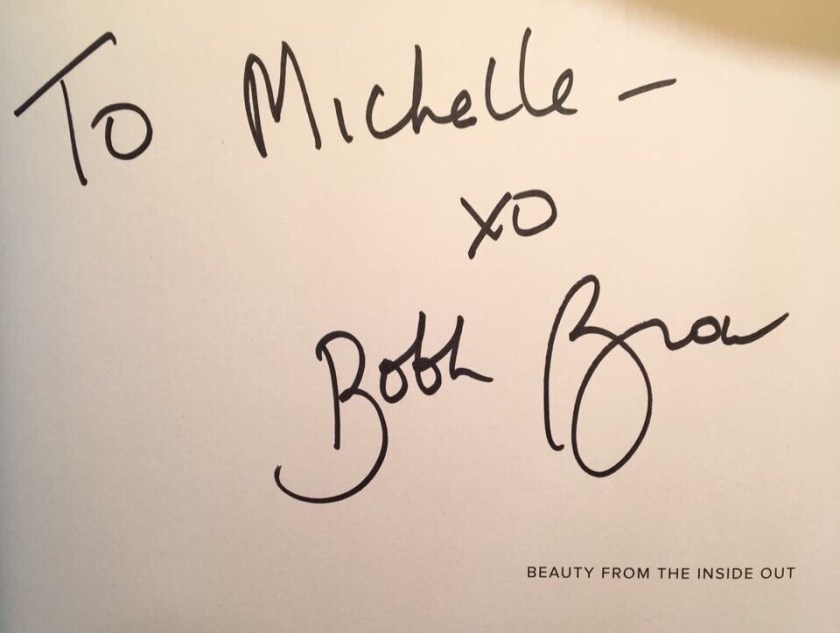 To Michelle –
XO
Bobbi Brown
BEAUTY FROM THE INSIDE OUT